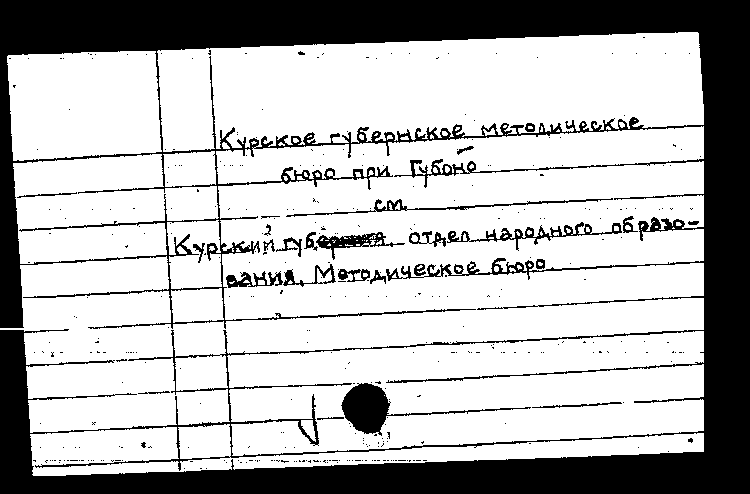 Курское губернское методическое
бюро при Губоно
см.
Курский губ. отдел народного образо-
вания. Методическое бюро.